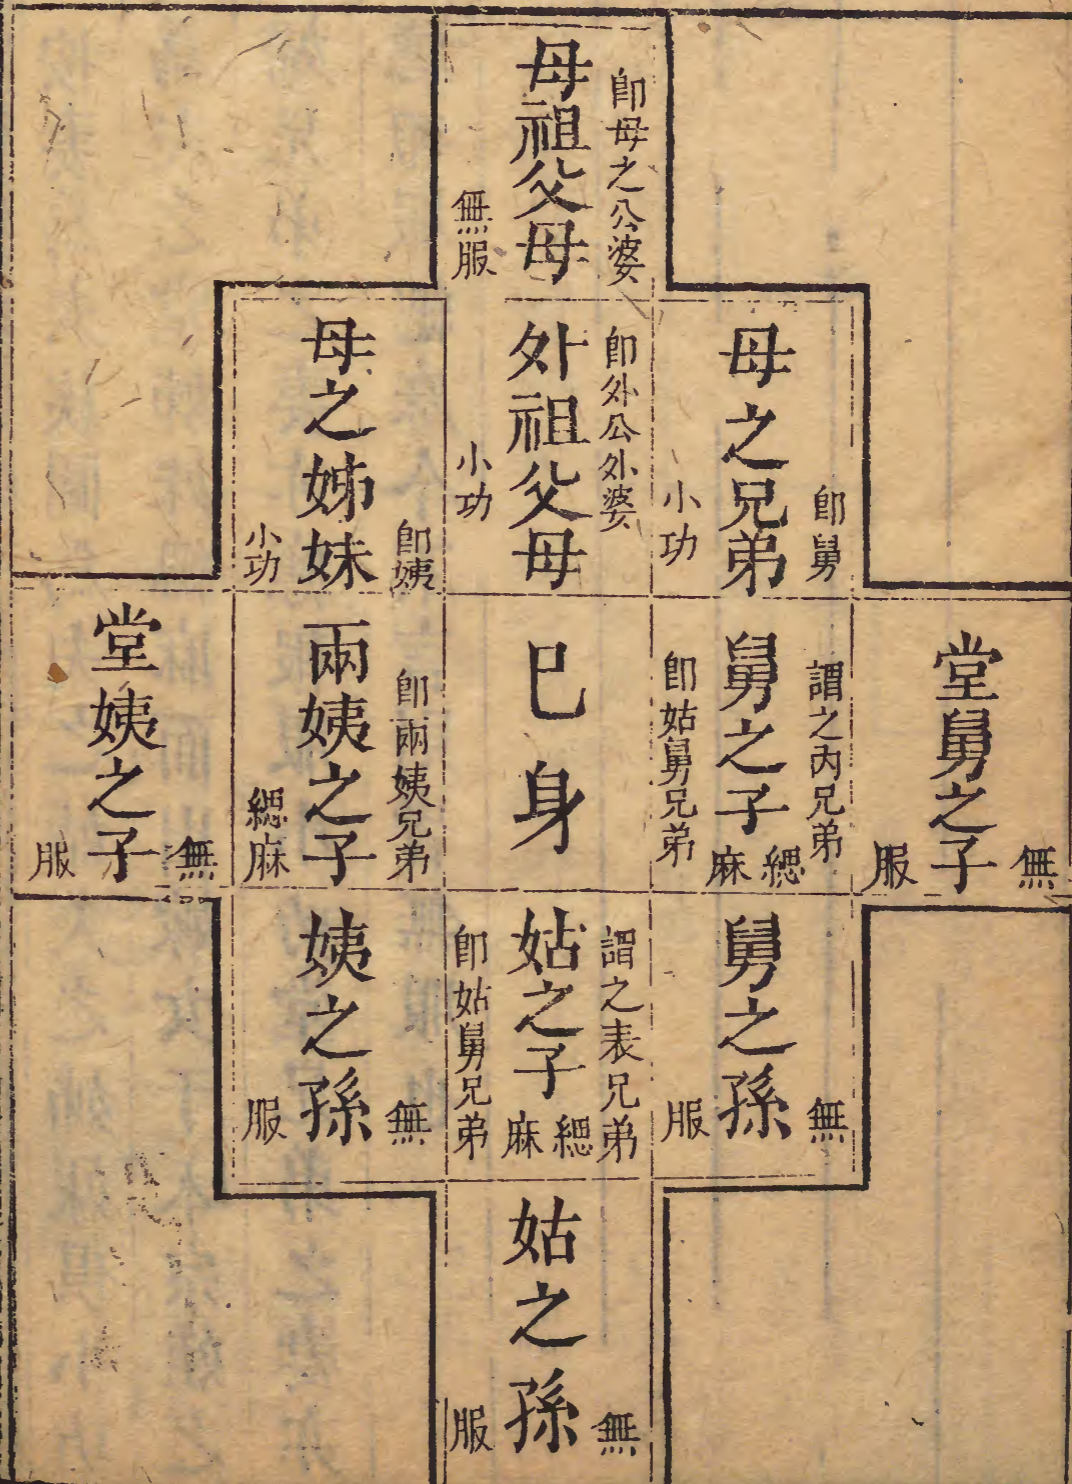 即母之公婆
母祖父母
無服
即舅
母之兄弟
小功
即外公外婆
外祖父母
小功
即姨
母之姊妹
小功
無
堂舅之子
服
謂之內兄弟
舅之子
緦麻
即姑舅兄弟
己身
即兩姨兄弟
兩姨之子
緦麻
無
堂姨之子
服
無
舅之孫
服
謂之表兄弟
姑之子
緦麻
即姑舅兄弟
無
姨之孫
服
無
姑之孫
服